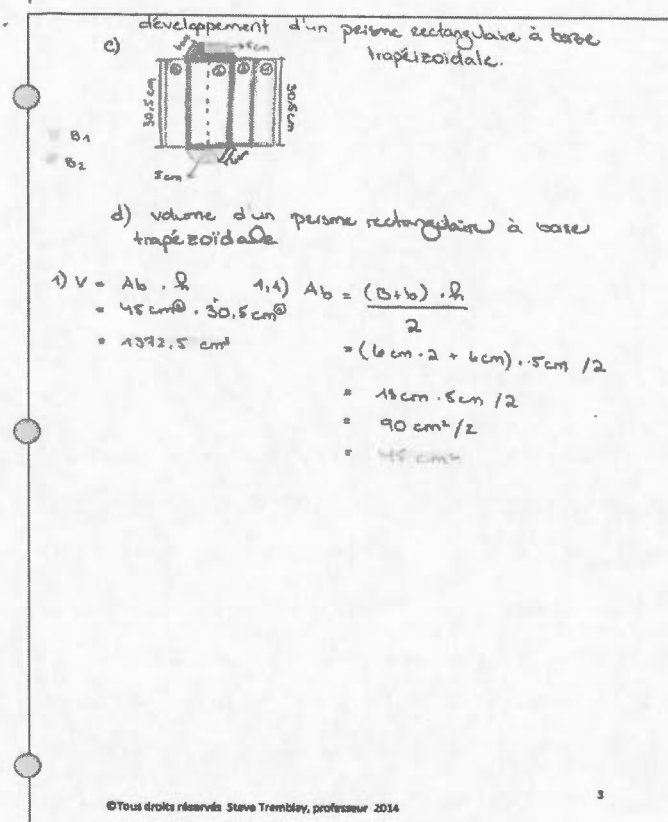 développement d'un prisme rectangulaire à base
trapézoïdale.
c)
5cm
① ② ③ ④
30,5 cm
30,5 cm
B1
B2
5cm
d) volume d'un prisme rectangulaire à base
trapézoïdale
1) V = Ab . h
= 45 cm② . 30,5 cm①
= 1372,5 cm³
1,1) Ab = (B+b) . h
2
= (6cm . 2 + 6cm) . 5cm /2
= 18cm . 5cm /2
= 90 cm²/2
= 45 cm²
©Tous droits réservés Steve Tremblay, professeur 2014
3